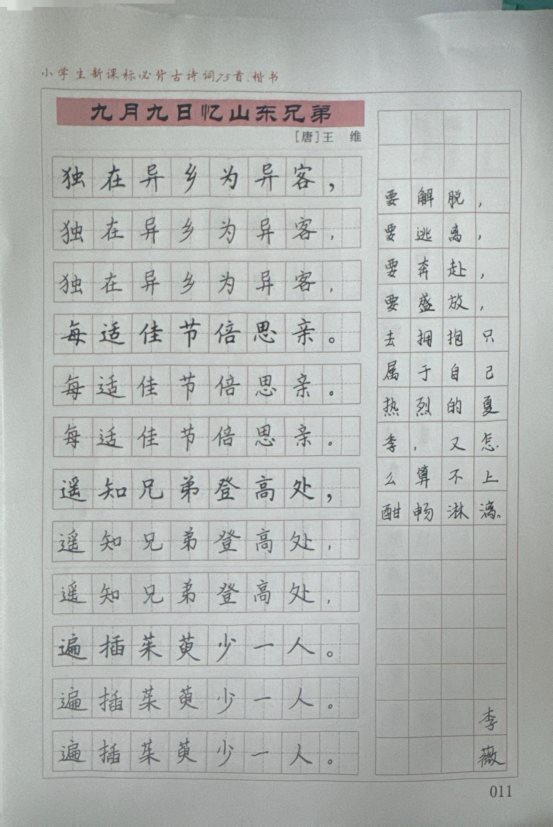 小学生新课标必背古诗词75首·楷书
九月九日忆山东兄弟
[唐]王 维
独在异乡为异客，
独在异乡为异客，
独在异乡为异客，
每逢佳节倍思亲。
每适佳节倍思亲。
每适佳节倍思亲。
遥知兄弟登高处，
遥知兄弟登高处，
遥知兄弟登高处，
遍插茱萸少一人。
遍插茱萸少一人。
遍插茱萸少一人。
要解脱，
要逃离，
要奔赴，
要盛放，
去拥抱只
属于自己
热烈的夏
季，又怎
么算不上
酣畅淋漓。
李
薇
011